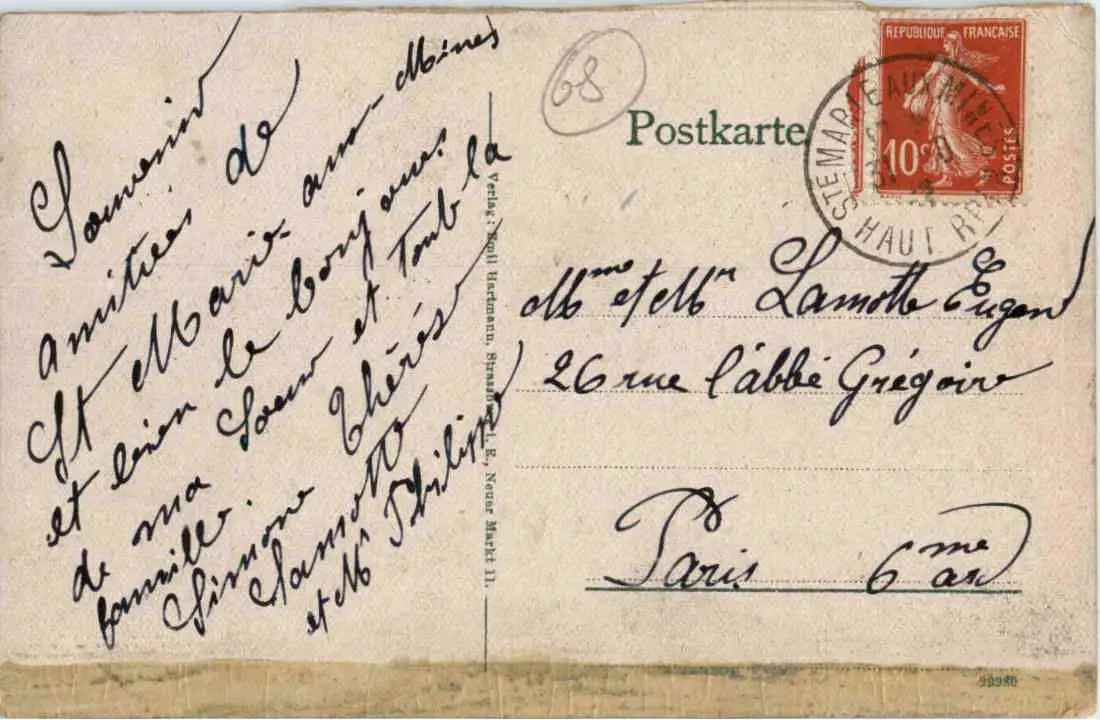 Souvenir
amitiés de
St Marie-aux-Mines
et bien le bonjour
de ma Soeur et toute la
famille.
Simone Thérése
Lamotte
et Mr Philippe
68
Postkarte
RÉPUBLIQUE FRANÇAISE
10c
POSTES
STE MARIE AUX MINES
HAUT RHIN
Mme et Mr Lamotte Eugen
26 rue l'abbé Grégoire
Paris 6me ard
Verlag: Emil Hartmann, Strassburg i. E., Neuer Markt 11.
99980